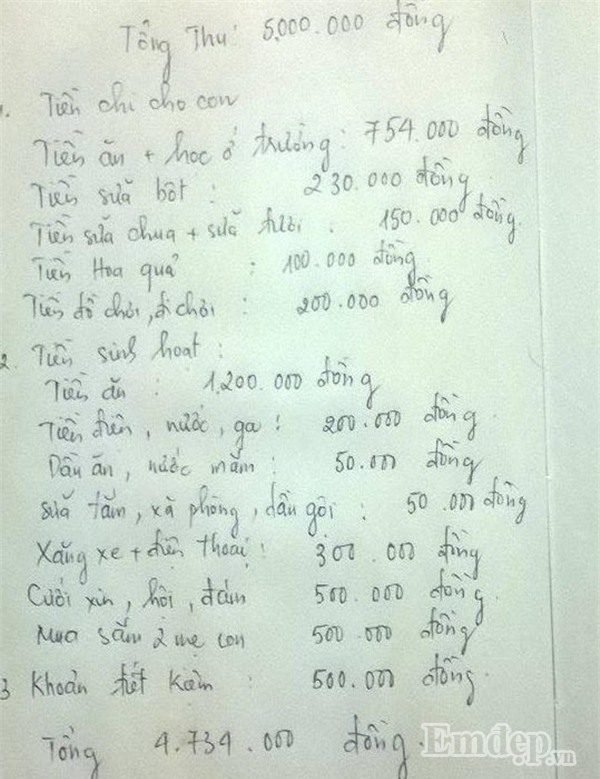 Tổng Thu: 5.000.000 đồng
1. Tiền chi cho con
Tiền ăn + học ở trường: 754.000 đồng
Tiền sữa bột: 230.000 đồng
Tiền sữa chua + sữa tươi: 150.000 đồng.
Tiền Hoa quả: 100.000 đồng
Tiền đồ chơi, đi chơi: 200.000 đồng
2. Tiền sinh hoạt:
Tiền ăn: 1,200.000 đồng
Tiền điện, nước, ga: 200.000 đồng.
Dầu ăn, nước mắm: 50.000 đồng
sữa tắm, xà phòng, dầu gội: 50.000 đồng
Xăng xe + điện thoại: 300.000 đồng
Cưới xin, hỏi, đám 500.000 đồng.
Mua sắm 2 mẹ con 500.000 đồng
3 Khoản tiết kiệm: 500.000 đồng.
Tổng 4.734.000 đồng.
Emdep.vn